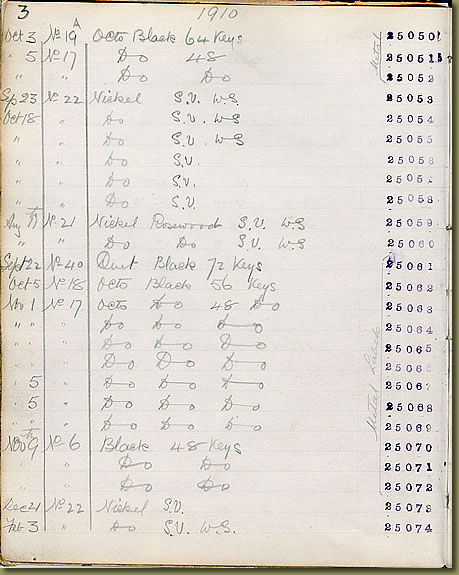 3 1910
Oct 3 No 19A Octo Black 64 Keys 25050
" 5 No 17 Do 48 25051
" " Do Do 25052
Sep 23 No 22 Nickel S.V. W.S 25053
Oct 18 " Do S.V. W.S 25054
" " Do S.V. W.S 25055
" " Do S.V. 25056
" " Do S.V. 25057
" " Do S.V. 25058
Aug No 21 Nickel Rosewood S.V. W.S 25059
" " Do Do S.V. W.S 25060
Sept 22 No 40 Duet Black 72 Keys 25061
Oct 5 No 18 Octo Black 56 Keys 25062
Nov 1 No 17 Octo Do 48 Do 25063
" " " Do Do Do 25064
" " Do Do Do 25065
" " Do Do Do 25066
5 " Do Do Do 25067
5 " Do Do Do 25068
" " Do Do Do 25069
Nov 9th No 6 Black 48 Keys 25070
" " Do Do 25071
" " Do Do 25072
Dec 21 No 22 Nickel S.V. 25073
Feb 3 " Do S.V. W.S. 25074
Metal